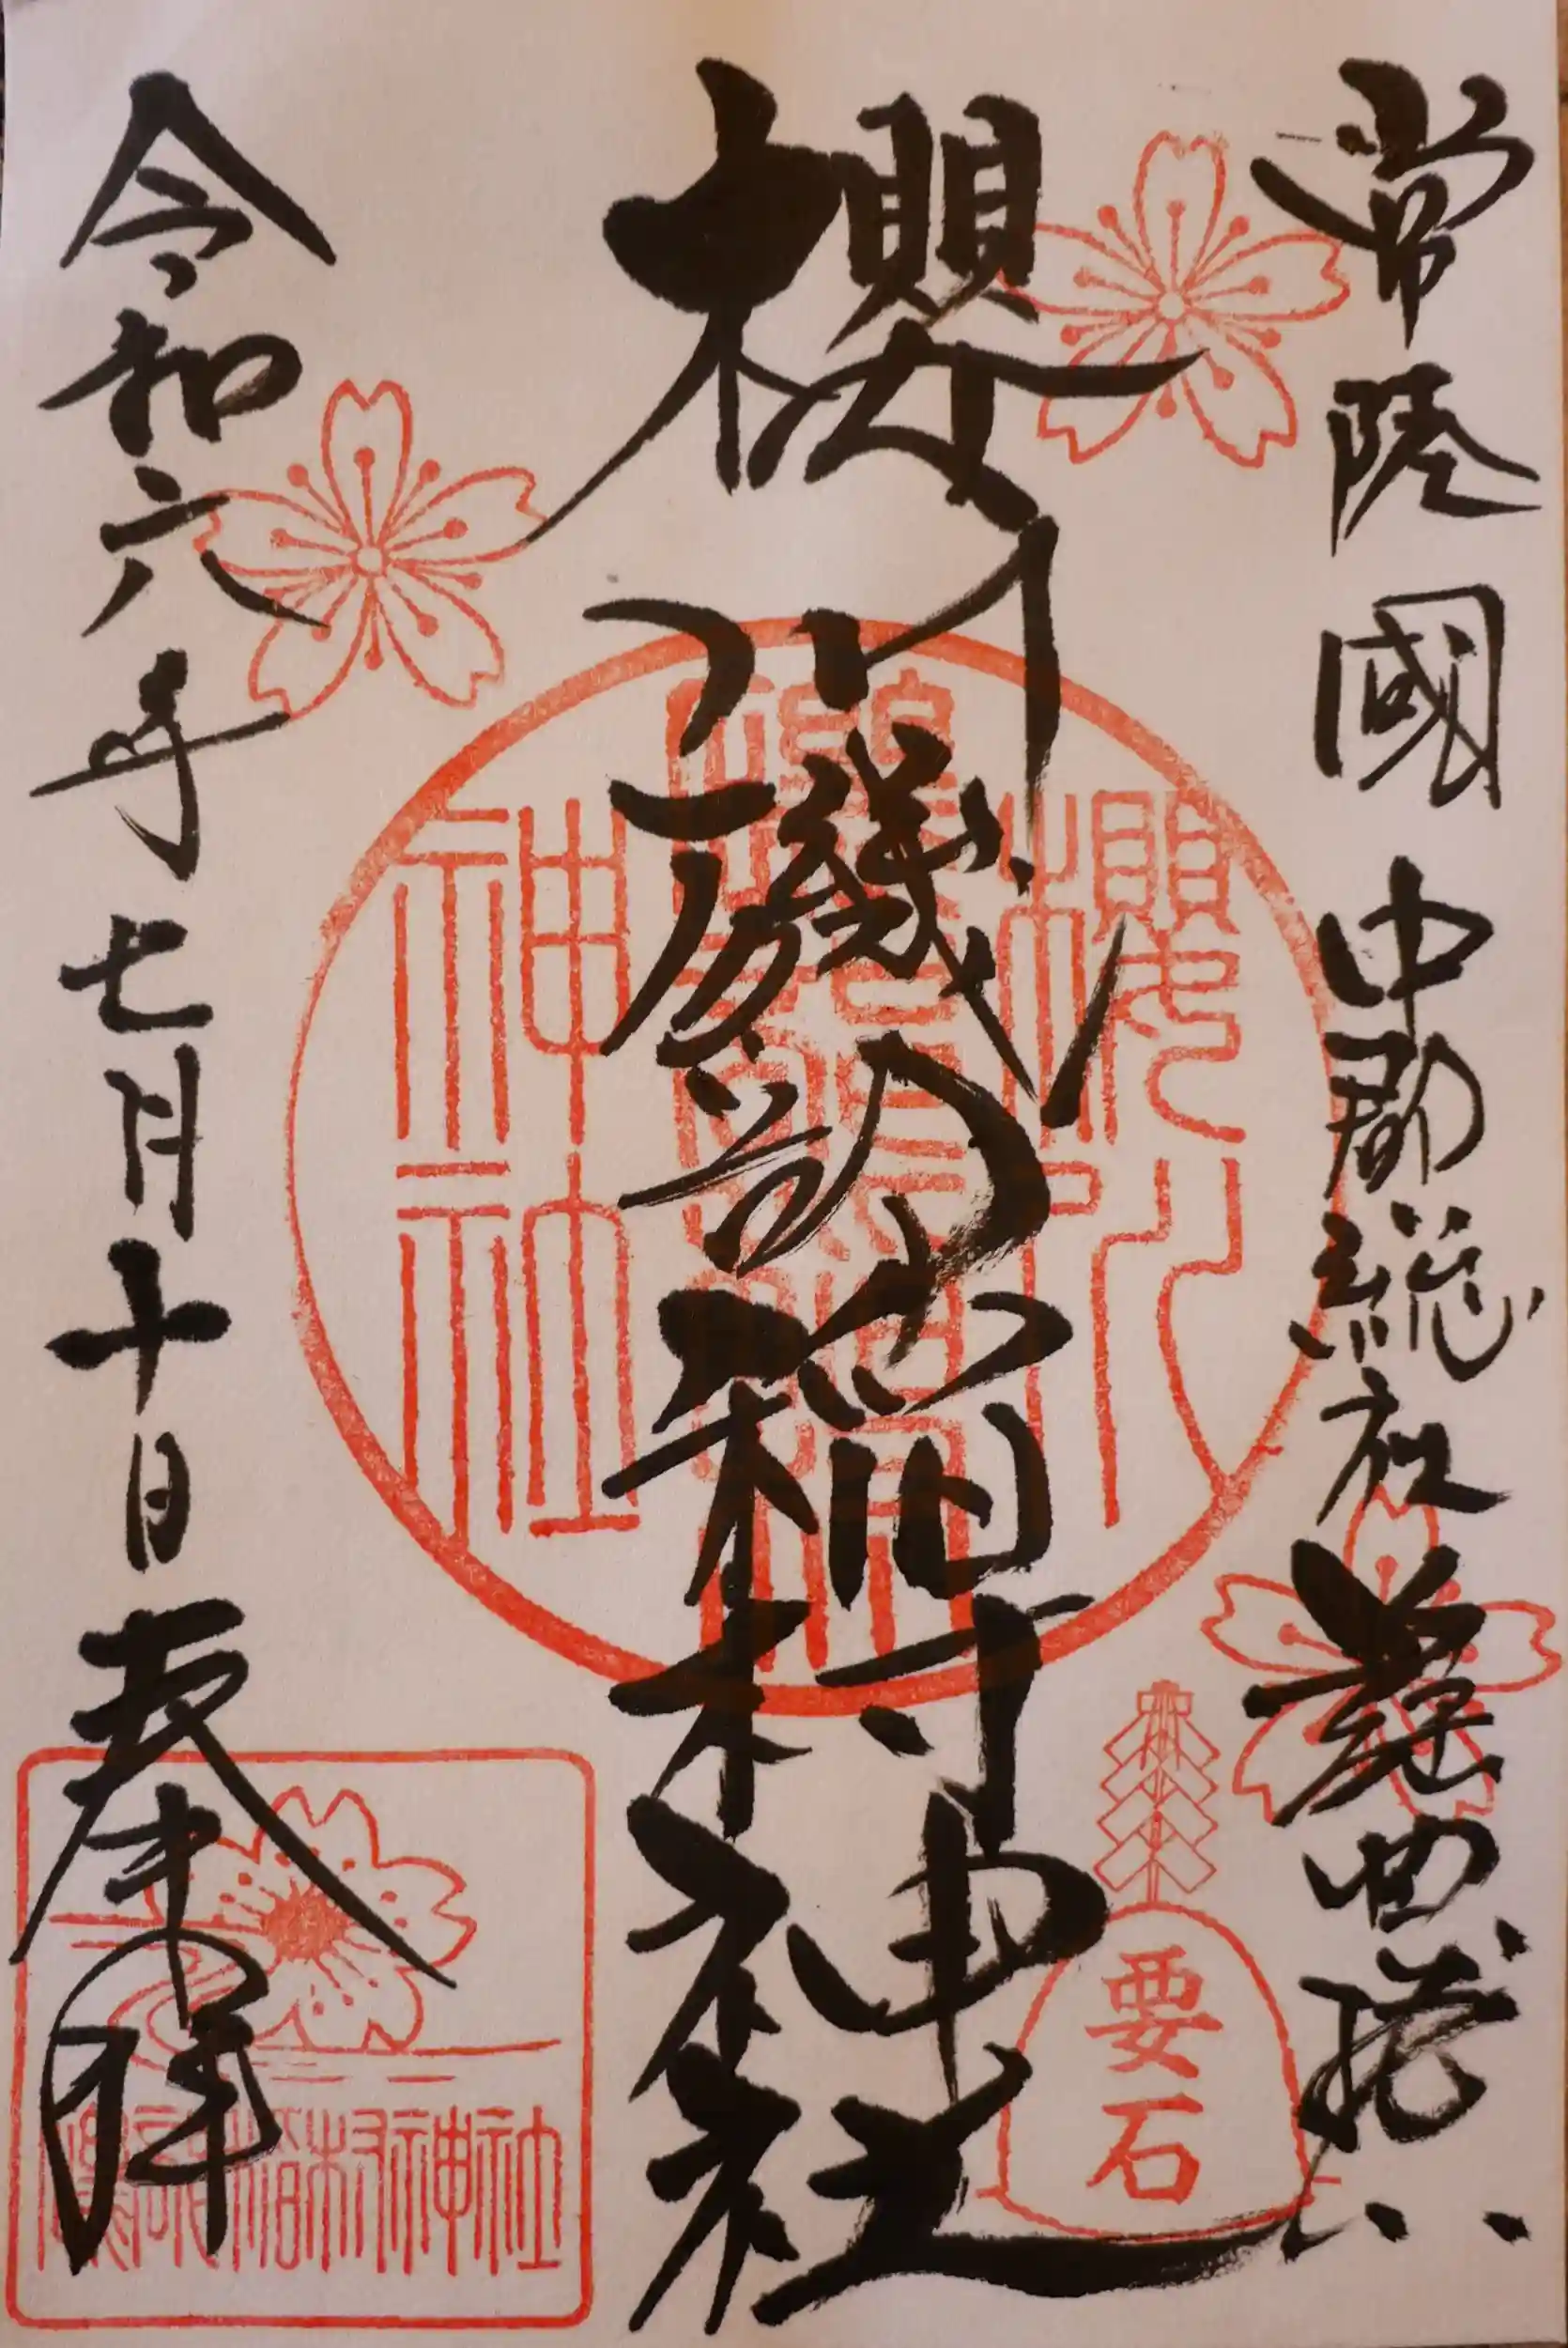 常陸國 中郡総社 謡曲桜川
櫻川磯部稲村神社
令和六年七月十日 奉拝
櫻川
磯部稲村
神社
要石
磯部稲村神社